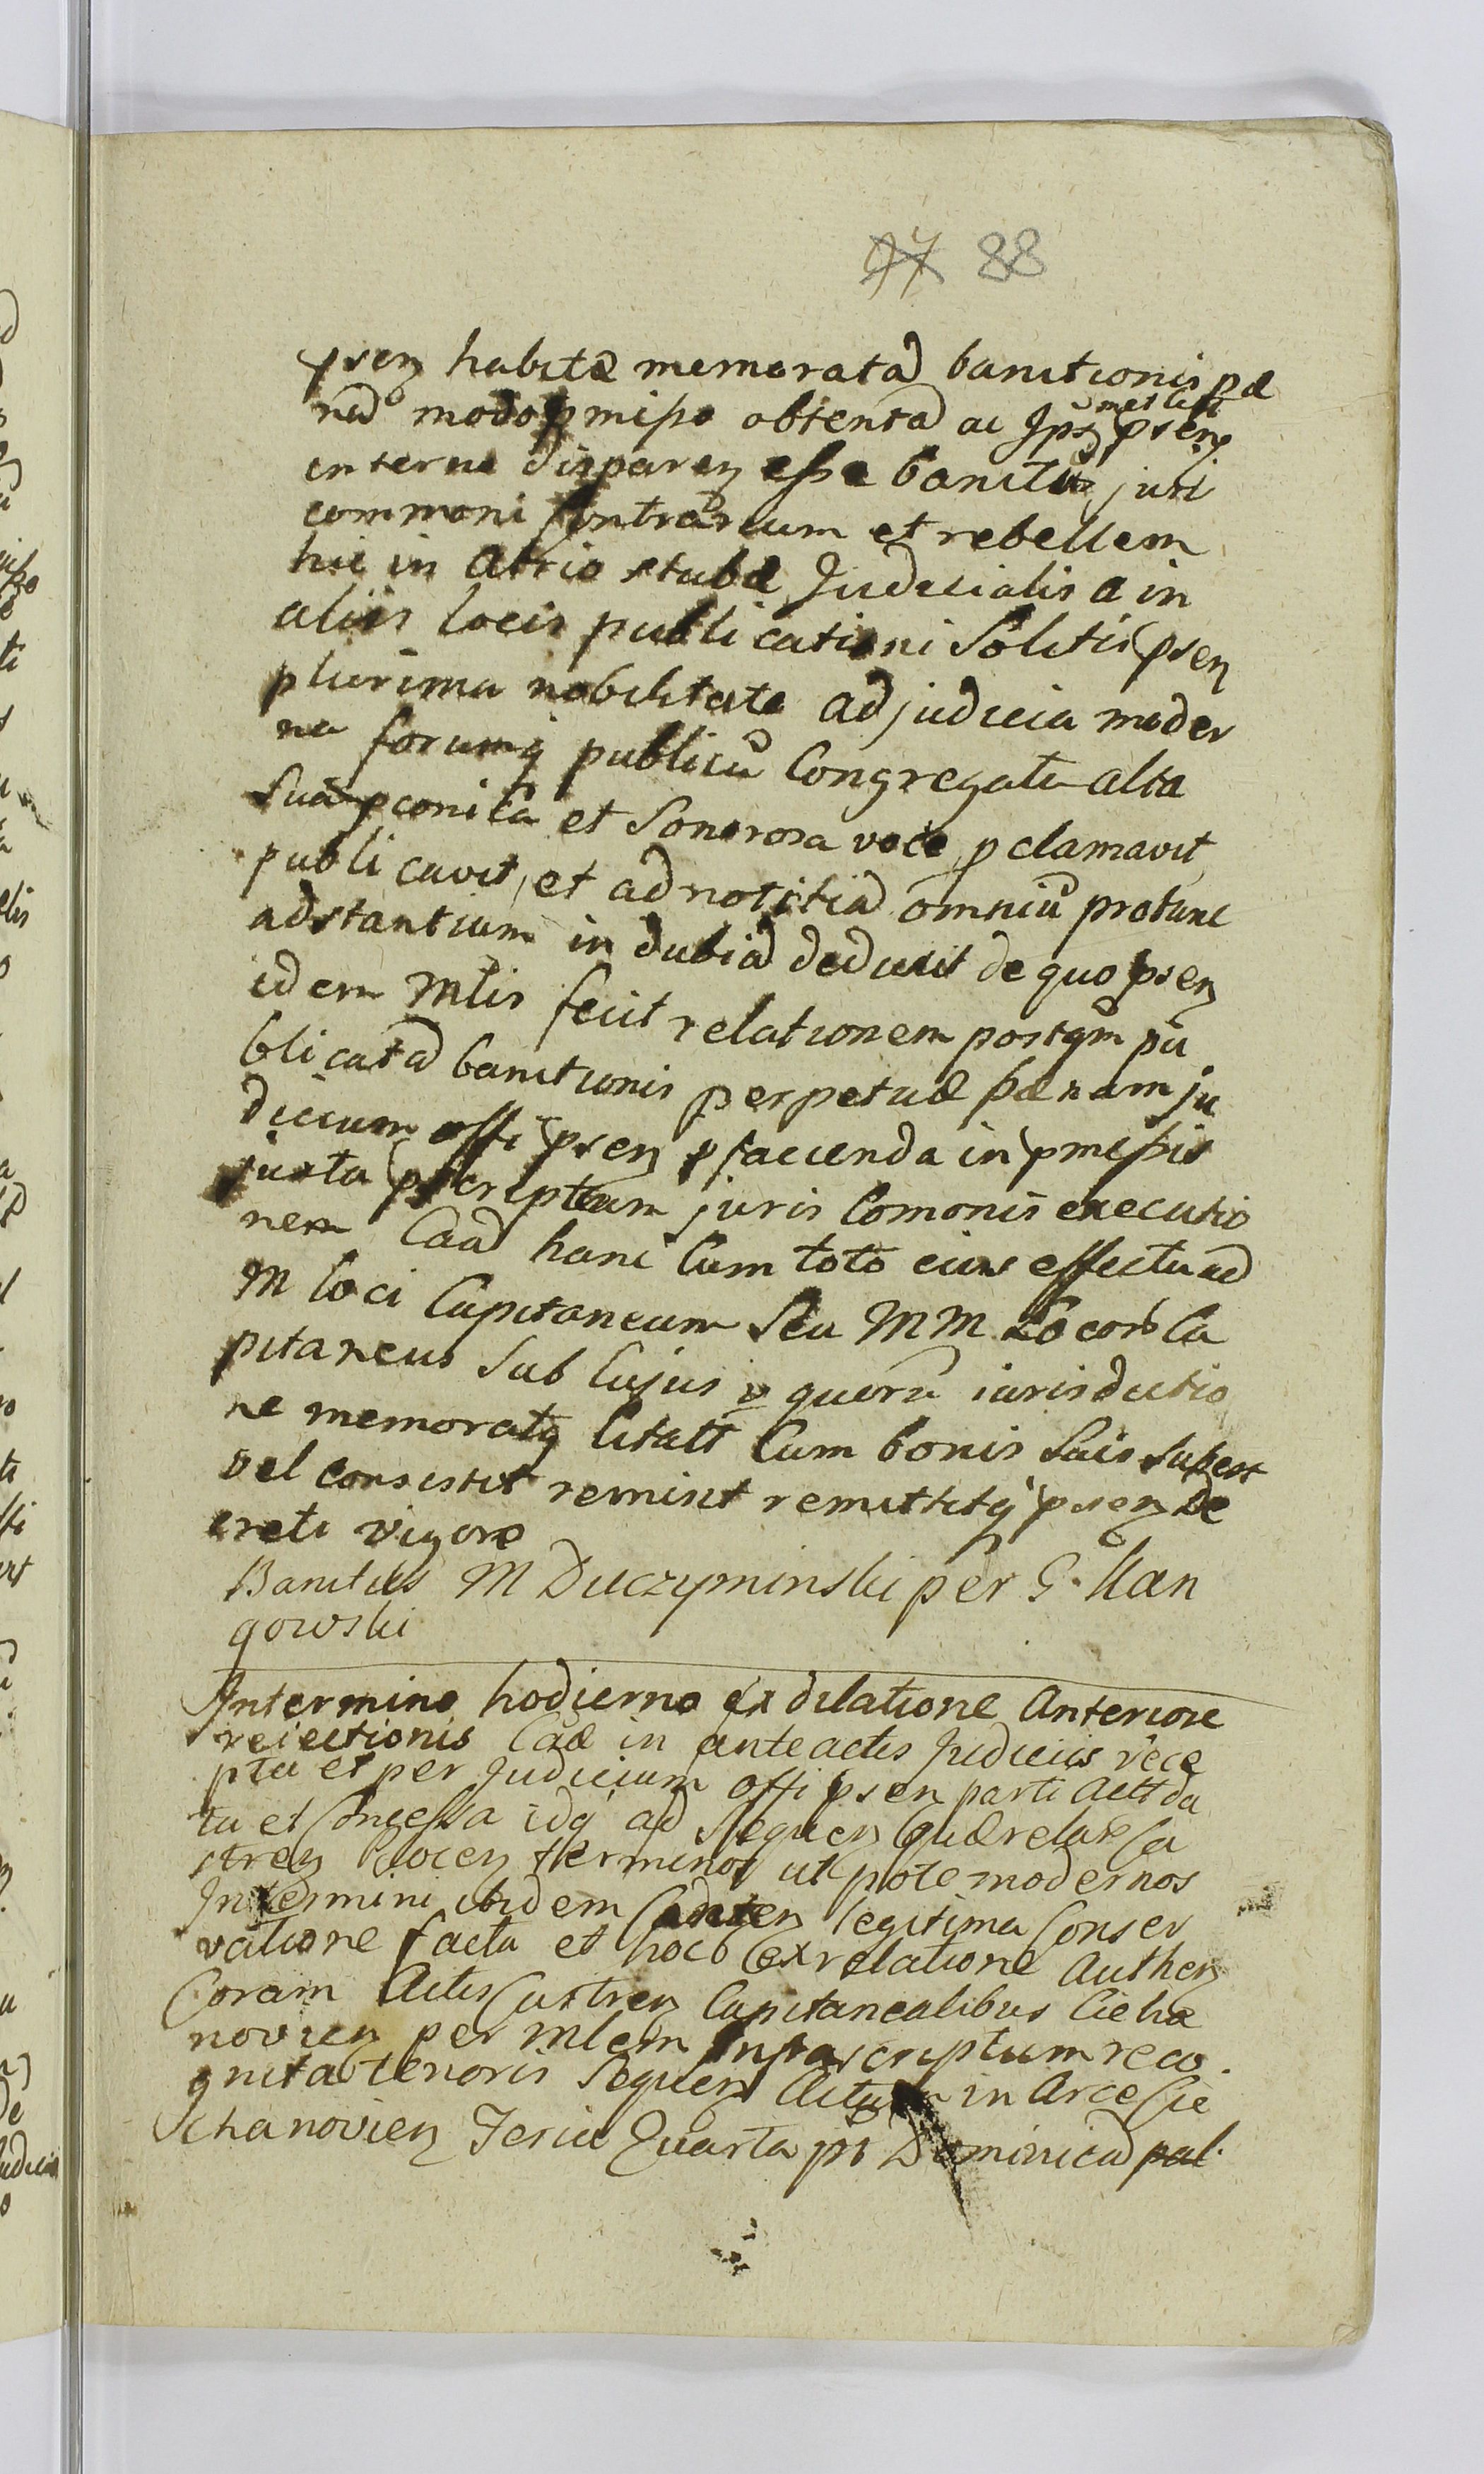 97 88
psen habitæ memoratã banitionis pæ
nã modo pmißo obtentã ac Ips̃
met Citt psen
in terne disparen eße banitũ juri
commoni Contrarium et rebellem
hic in Atrio stubæ Judicialis a in
aliis locis publicationi Solitis psen
plurima nobilitate ad judicia moder
na forumq publicũ Congregata alta
Sua pconica et Sonorosa voce pclamavit
publicavit, et ad notitiã omniũ protunc
adstantium in dubiã deduxit de quo psen
idem Mlis fecit relationem postqm pu
blicatã banitionis perpetuæ pænam ju
dicium offi psen p facienda in pmißis
juxta pscriptum juris Comonis executio
nem Caã hanc Cum toto eius effectu ad
M loci Capitaneum Seu MM Locor Ca
pitaneus Sub Cujus v quorũ iurisdictio
ne memoratq Citatt Cum bonis Suis Subest
vel consistit remisit remittitq psen De
creti vigore
Banitus M Duczyminski per G. Kan
gowski
In termino hodierno ex dilatione Anteriore
reiectionis Caæ in anteactis Judiciis rece
pta et per Judicium offi psen parti Actt da
ta et Conceßa idq ad Sequen Querelar Ca
stren Cocen terminos utpote modernos
In termini ibidem Caden legitima Conser
vatione facta et hoc ex relatione Authen
Coram Actis Castren Capitanealibus Ciecha
novien per Mlem Infrascriptum reco
gnita tenoris Sequen Actum in Arce Cie
chanovien Feria Quarta pt Dominicã pal